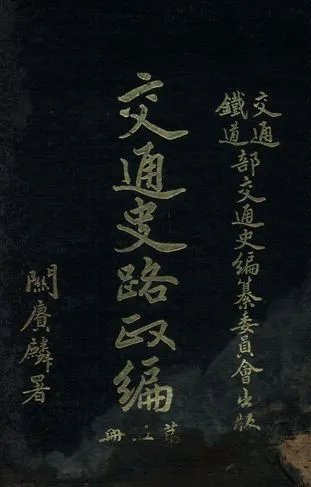 交通
鐵道
部交通史編纂委員會出版
交通史路政編
第 冊
關賡麟署